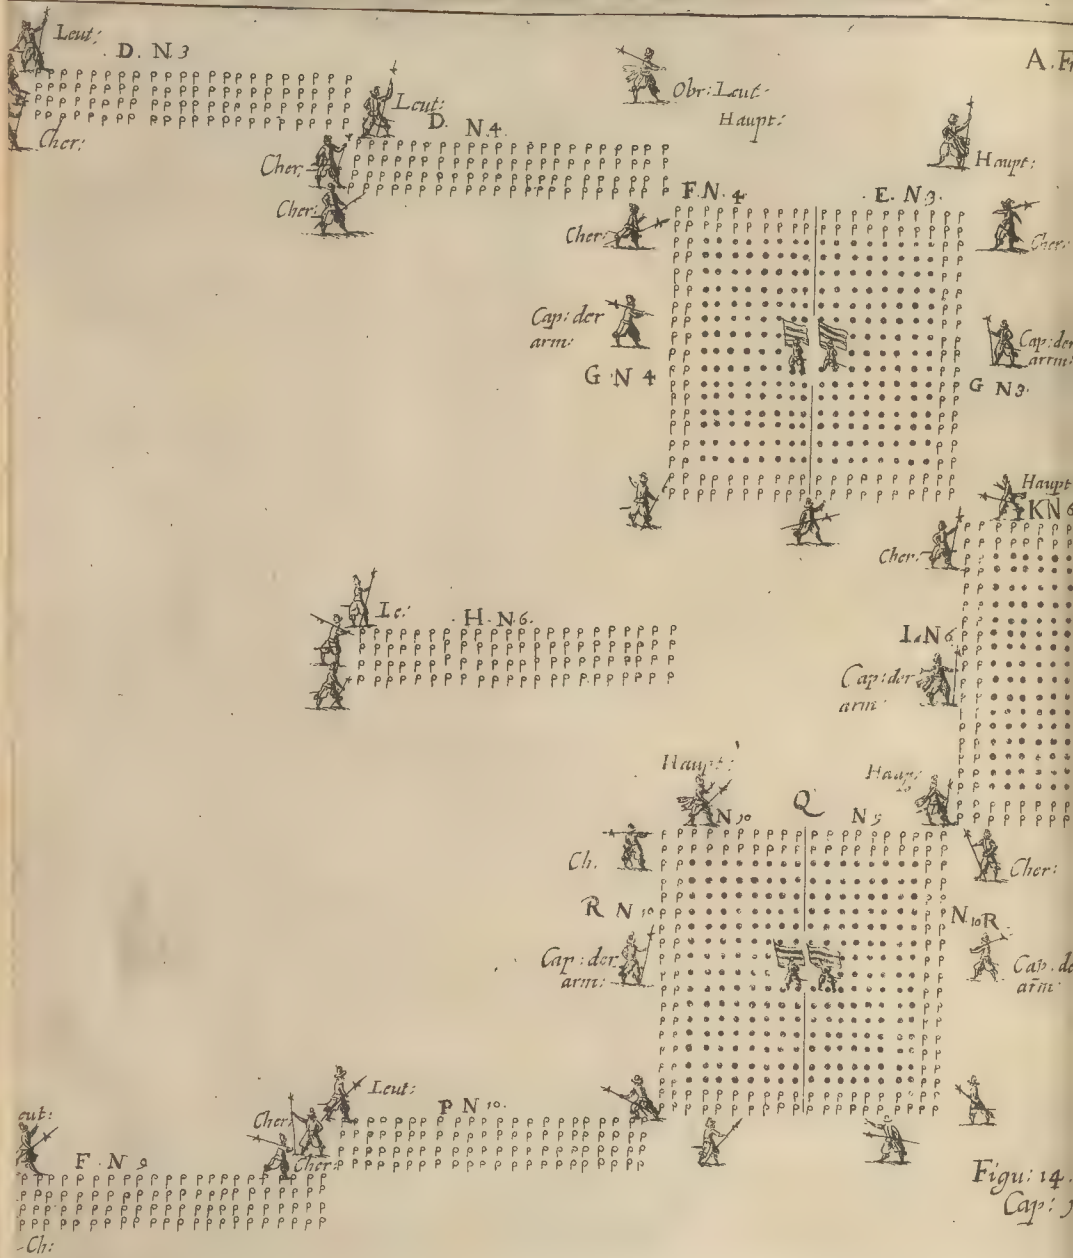 Leut:
D. N. 3
A. F
Obr: Leut.
Haupt:
Leut:
D. N. 4.
Cher:
Cher:
Haupt:
Cher:
F. N. 4
E. N 3.
Cher:
Cher:
Cap: der
arm:
Cap: der
arm:
G N 4
G N 3.
Haupt
KN 6
Cher:
Le:
H. N. 6.
I. N 6
Cap: der
arm:
Haupt:
Haup:
N 10
Q
N 9
Ch.
Cher:
R N 10
N. 10 R
Cap: der
arm:
Cap. de
arm:
Leut:
P N 10.
Cher:
Cher:
eut:
F. N 9
Figu: 14.
Cap:
Ch: